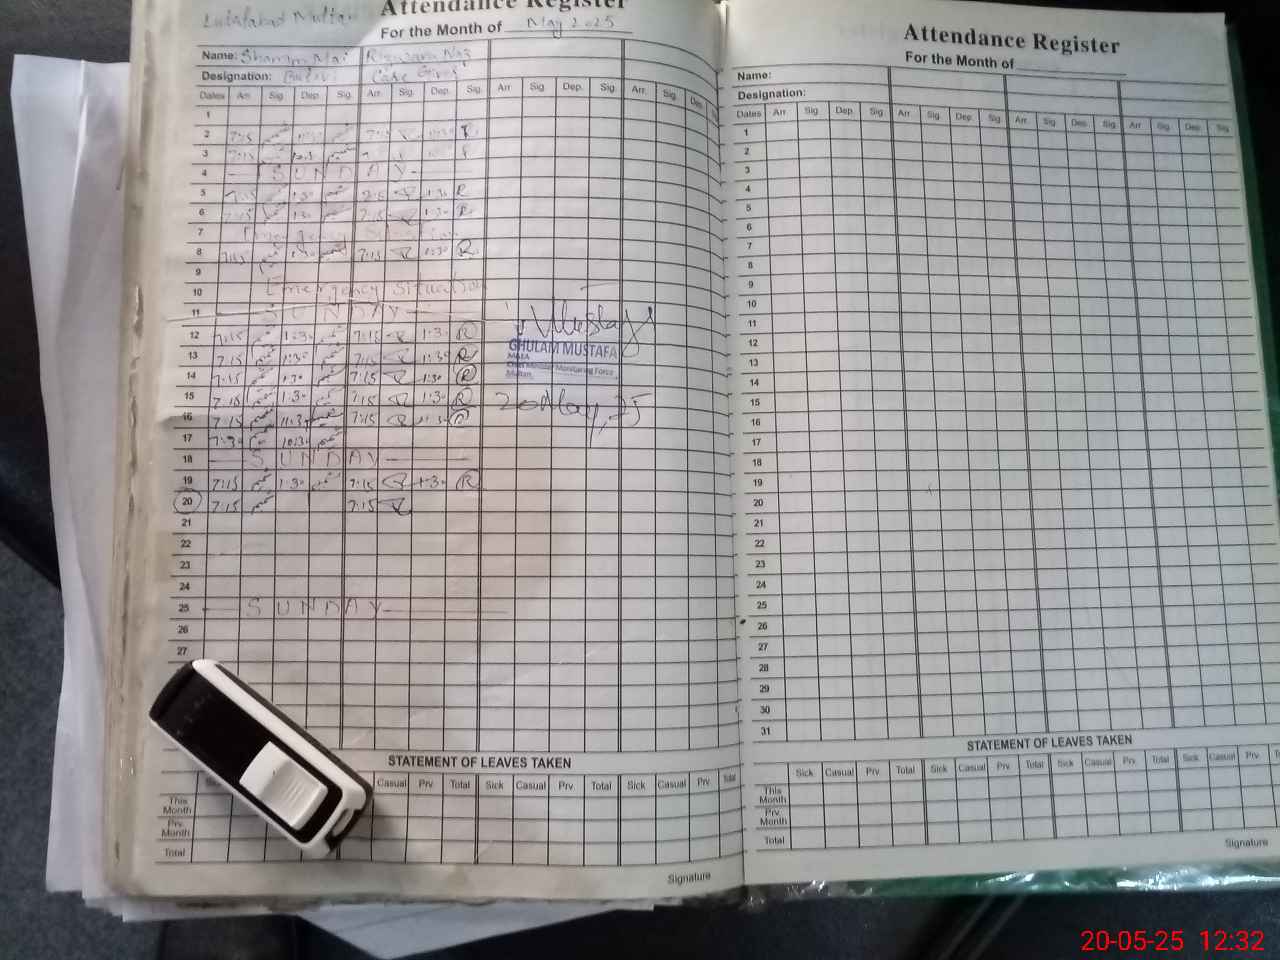 Lutafabad Multan
Attendance Register
For the Month of May 2025
Name: Shamim Mai
Designation: Care Giver
Dates Arr. Sig. Dep. Sig. Arr. Sig. Dep. Sig. Arr Sig. Dep. Sig. Arr. Sig. Dep. Sig.
1
2 7:15 7:15
3 7:15
4 SUNDAY
5 7:15 1:30 7:15 1:30 R
6 7:15 1:30 7:15 1:30 R
7 Emergency Situation
8 7:15 7:15 1:30 R
9
10 Emergency Situation
11 SUNDAY
12 7:15 1:30 7:15 1:30 R
13 7:15 1:30 7:15 1:30 R
14 7:15 1:30 7:15 1:30 R
15 7:15 1:30 7:15 1:30 R
16 7:15 11:30 7:15 1:30 R
17 7:30 10:30
18 SUNDAY
19 7:15 1:30 7:15 1:30 R
20 7:15 7:15
21
22
23
24
25 SUNDAY
26
27
GHULAM MUSTAFA
M&EA
Chief Minister Monitoring Force
Multan.
20 May, 25
STATEMENT OF LEAVES TAKEN
Casual Prv. Total Sick Casual Prv. Total Sick Casual Prv. Total
This Month
Prv. Month
Total
Signature
Attendance Register
For the Month of
Name:
Designation:
Dates Arr. Sig. Dep. Sig. Arr. Sig. Dep. Sig. Arr. Sig. Dep. Sig. Arr Sig. Dep. Sig.
1
2
3
4
5
6
7
8
9
10
11
12
13
14
15
16
17
18
19
20
21
22
23
24
25
26
27
28
29
30
31
STATEMENT OF LEAVES TAKEN
Sick Casual Prv. Total Sick Casual Prv. Total Sick Casual Prv. Total Sick Casual Prv.
This Month
Prv. Month
Total
Signature
20-05-25 12:32